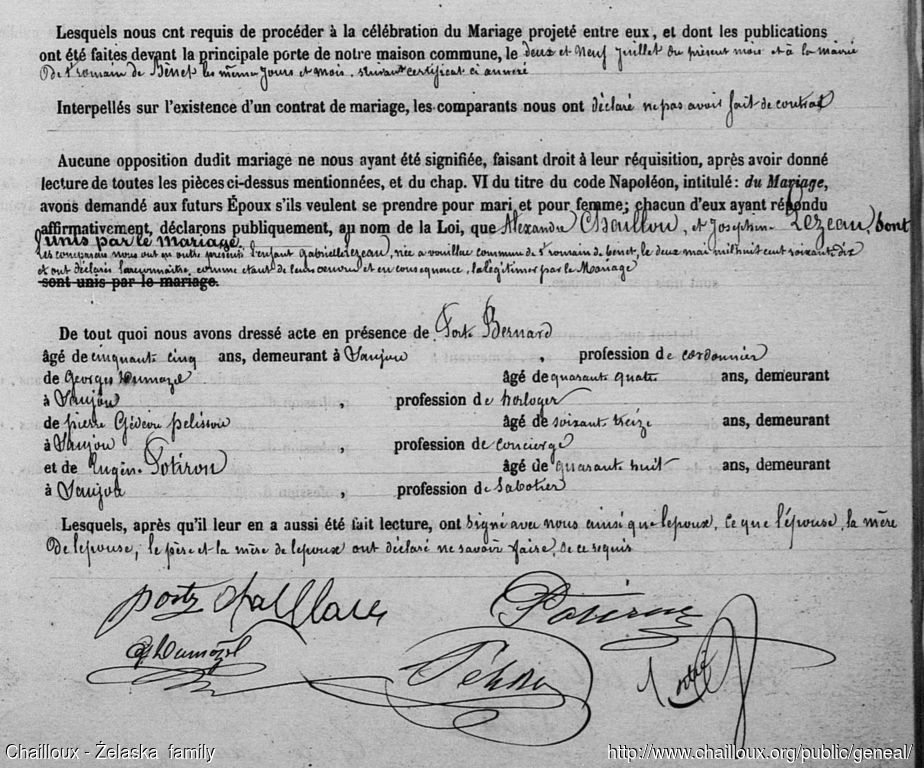 Lesquels nous ont requis de procéder à la célébration du Mariage projeté entre eux, et dont les publications
ont été faites devant la principale porte de notre maison commune, le deux et Neuf juillet du présent mois et à la mairie
De St romain de Benet les même jours et mois. suivant certificat ci annexé
Interpellés sur l'existence d'un contrat de mariage, les comparants nous ont déclaré ne pas avoir fait de contrat
Aucune opposition dudit mariage ne nous ayant été signifiée, faisant droit à leur réquisition, après avoir donné
lecture de toutes les pièces ci-dessus mentionnées, et du chap. VI du titre du code Napoléon, intitulé : du Mariage,
avons demandé aux futurs Époux s'ils veulent se prendre pour mari et pour femme; chacun d'eux ayant répondu
affirmativement, déclarons publiquement, au nom de la Loi, que Alexandre Chaillou, et Joséphine Lezeau, Sont
unis par le mariage.
Les comparans nous ont en outre présenté l'enfant Gabrielle Lezeau, née a vouillac commune de St romain de benet, le deux mai mil huit cent soixante dix
et ont déclarés la reconnaître, comme etant de leur œuvre et en consequence, la légitimer par le Mariage
sont unis par le mariage.
De tout quoi nous avons dressé acte en présence de Porte Bernard
âgé de cinquante cinq ans, demeurant à Saujon , profession de cordonnier
de Georges Dumazel âgé de quarante quatre ans, demeurant
à Saujon , profession de horloger
de pierre Gédéon pelisson âgé de soixant treize ans, demeurant
à Saujon , profession de concierge
et de Eugène Potiron âgé de quarante huit ans, demeurant
à Saujon , profession de Sabotier
Lesquels, après qu'il leur en a aussi été fait lecture, ont signé avec nous ainsi que lepoux. Ce que l'épouse, la mère
De lepouse, le père et la mère de lepoux ont déclaré ne savoir faire, de ce requis
porte
Potiron
G Dumazel
Chailloux - Żelaska family
http://www.chailloux.org/public/geneal/